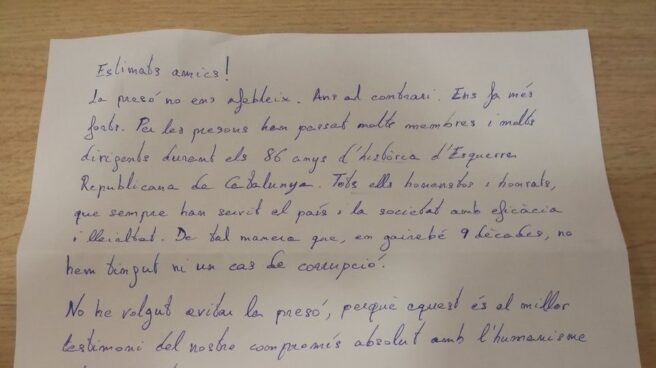 Estimats amics!
La presó no ens afebleix. Ans al contrari. Ens fa més
forts. Per les presons han passat molts membres i molts
dirigents durant els 86 anys d'història d'Esquerra
Republicana de Catalunya. Tots ells honestos i honrats,
que sempre han servit el país i la societat amb eficàcia
i lleialtat. De tal manera que, en gairebé 9 dècades, no
hem tingut ni un cas de corrupció.
No he volgut evitar la presó, perquè aquest és el millor
testimoni del nostre compromís absolut amb l'humanisme